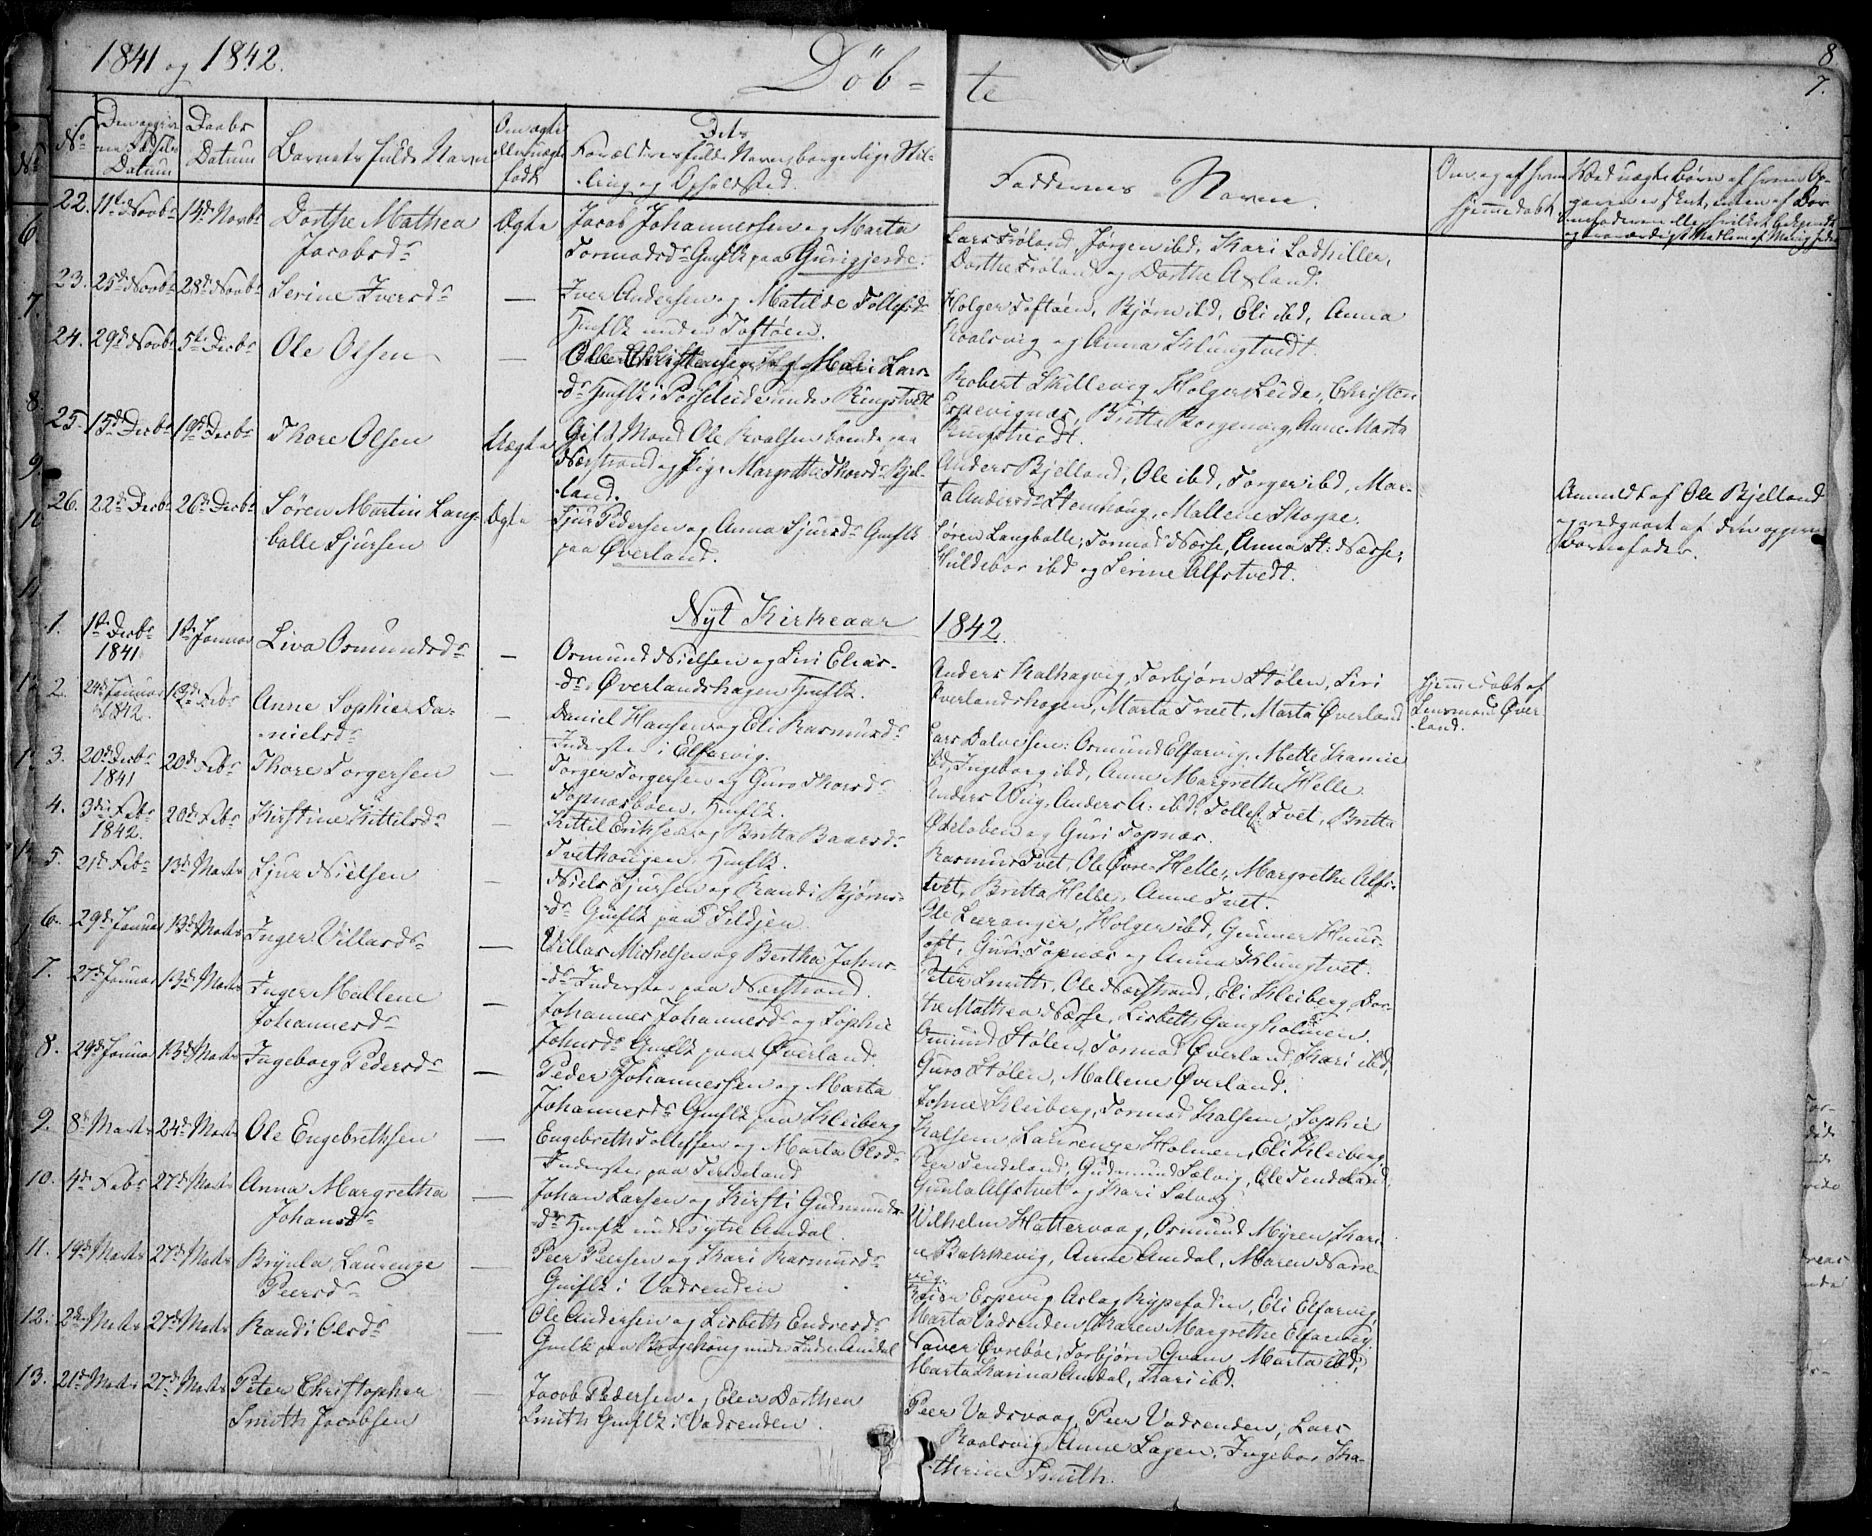 1841 og 1842.
Döb-
te
8
7.
No
Daabs
Datum
Barnets fulde Navn
Forældres fulde Navne, borgerlige Stil-
ling og Opholdsted.
Faddernes Navne.
22. 11te Novbr 14de Novbr Dorthe Mathea
Jacobsdr
Ægte
Jacob Johannessen og Marta
Tormodsdr Gmflk paa Gurigjerde.
Lars Frøland, Jørgen ibd, Kari Ladhiller,
Dorthe Frøland og Dorthe Aland.
23. 25de Novbr 28de Novbr Serine Iversdr
—
Iver Andersen og Matilde Tollefsdr
Hmflk under Toftøen.
Holger Toftøen, Bjørn ibd, Eli ibd, Anna
Roalsvig og Anna Klungtvedt.
24. 29de Novbr 5te Decbr Ole Olsen
—
Mari Lars-
dr Hmflk i under Ringstvedt
Robert Skillevig, Holger Leide, Christen
Espevignæs, Britta Borgenvig, Anne Marta
Ringstvedt.
25. 15de Decbr 19de Decbr Thore Olsen
Uægte
Gift Mand Ole Roalsen boende paa
Nærstrand og Pige Margrethe Thorsdr Bjel-
land.
Anders Bjelland, Ole ibd, Torger ibd, Mar-
ta Andersdr Stemhoug, Mallene Skorpe.
Anmeldt af Ole Bjelland
og vedgaaet af den opgivne
Barnefader.
26. 22de Decbr 26de Decbr Søren Martin Lang-
balle Sjursen
Ægte
Sjur Pedersen og Anna Sjursdr Gmflk
paa Øverland.
Søren Langballe, Tormod Nærse, Anna St: Nærse,
Huldebor ibd og Serine Alfstvedt.
Nyt Kirkeaar
1842.
1. 1ste Decbr
1841
1ste Januar Liva Osmundsdr
—
Osmund Nielsen og Siri Elias-
dr Øverlandshagen Hmflk.
Anders Kalhagvig, Torbjørn Stølen, Siri
Øverlandshagen, Marta Tvet, Marta Øverland
Hjemmedøbt af
Lensmand Øver-
land.
2. 24de Januar
1842.
13de Febr Anne Sophie Da-
nielsdr
—
Daniel Hansen og Eli Rasmusdr
Inderster i Elfarvig.
Lars Dalvesen: Osmund Elfarvig, Mette Kamine
ibd, Ingeborg ibd, Anne Margrethe Helle.
3. 20de Decbr
1841
20de Febr Thore Torgersen
—
Torger Torgersen og Guro Thorsdr
Topnæsbøen, Hmflk.
Anders Vug, Anders A: ibd, Tollef Tvet, Britta
Ødeløben og Guri Topnæs.
4. 3die Febr
1842.
20de Febr Kirstine Kittilsdr
—
Kittil Eriksen og Britta Baarsdr
Tvethougen, Hmflk.
Rasmus Tvet, Ole Øvre Helle, Margrethe Alfs-
tvet, Britta Helle, Anne Tvet.
5. 21de Febr 13de Marts Sjur Nielsen
—
Niels Sjursen og Randi Bjørns-
dr Gmflk paa Sildjen.
Ole Leeranger, Holger ibd, Gunner Huus-
toft, Guri Topnæs og Anna Klungtvet.
6. 29de Januar 13de Marts Inger Villasdr
—
Villas Michelsen og Bertha Johns-
dr Inderster paa Nærstrand.
Peter Smith, Ole Nærstrand, Eli Kleiberg, Dor-
the Mathea Nærse, Lisbeth Gangholmen.
7. 27de Januar 13de Marts Inger Mallene
Johannesdr
—
Johannes Johannesdr og Sophie
Johnsdr Gmflk paa Øverland.
Osmund Stølen, Tormod Øverland, Kari ibd,
Guro Stølen, Mallene Øverland.
8. 29de Januar 13de Marts Ingeborg Pedersdr
—
Peder Johannessen og Marta
Johannesdr Gmflk paa Kleiberg
Johne Kleiberg, Tormod Kalsem, Sophie
Kalsem, Laurenze Holmen, Eli Kleiberg.
9. 8de Marts 24de Marts Ole Engebrethsen
—
Engebreth Tollefsen og Marta Olsdr
Inderster paa Tendeland
Peer Tendeland, Gudmund Sælvig, Ole Tendeland,
Gunla Alfstvet og Kari Sælvig.
10. 4de Febr 27de Marts Anna Margretha
Johansdr
—
Johan Larsen og Kirsti Gudmunds-
dr Hmflk under ytre Amdal.
Vilhelm Hattervaag, Osmund Myren, Kari-
n Bakkevig, Anne Amdal, Maren Narre-
vig.
11. 19de Marts 27de Marts Brynla Laurenze
Peersdr
—
Peer Peersen og Kari Rasmusdr
Gmflk i Vadsenden
Espevig, Aslag Rypefoden, Eli Elfarvig,
Marta Vadsenden, Karen Margrethe Elfarvig.
12. 2den Marts 27de Marts Randi Olsdr
—
Ole Andersen og Lisbeth Endresdr
Gmflk paa Borgehoug under Indre Amdal
Taver Øvrebøe, Torbjørn Qvam, Marta ibd,
Marta Karina Amdal, Kari ibd.
13. 21de Marts 27de Marts Peter Christopher
Smith Jacobsen
—
Jacob Pedersen og Elen Dorthea
Smith Gmflk i Vadsenden.
Peer Vadsvaag, Peer Vadsenden, Lars
Roalsvig, Anne Lagen, Ingebor Ka-
therine Smith.